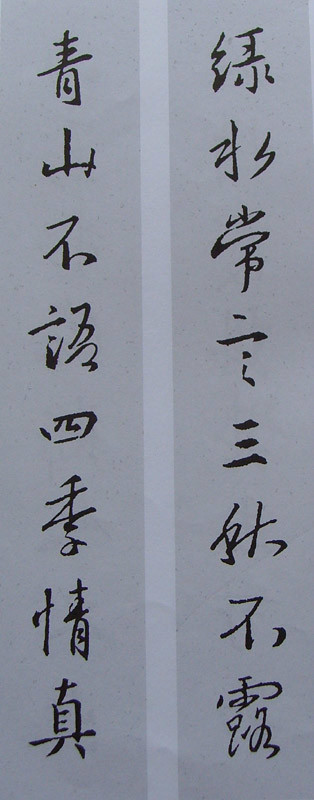 绿水常言三秋不露
青山不語四季情真